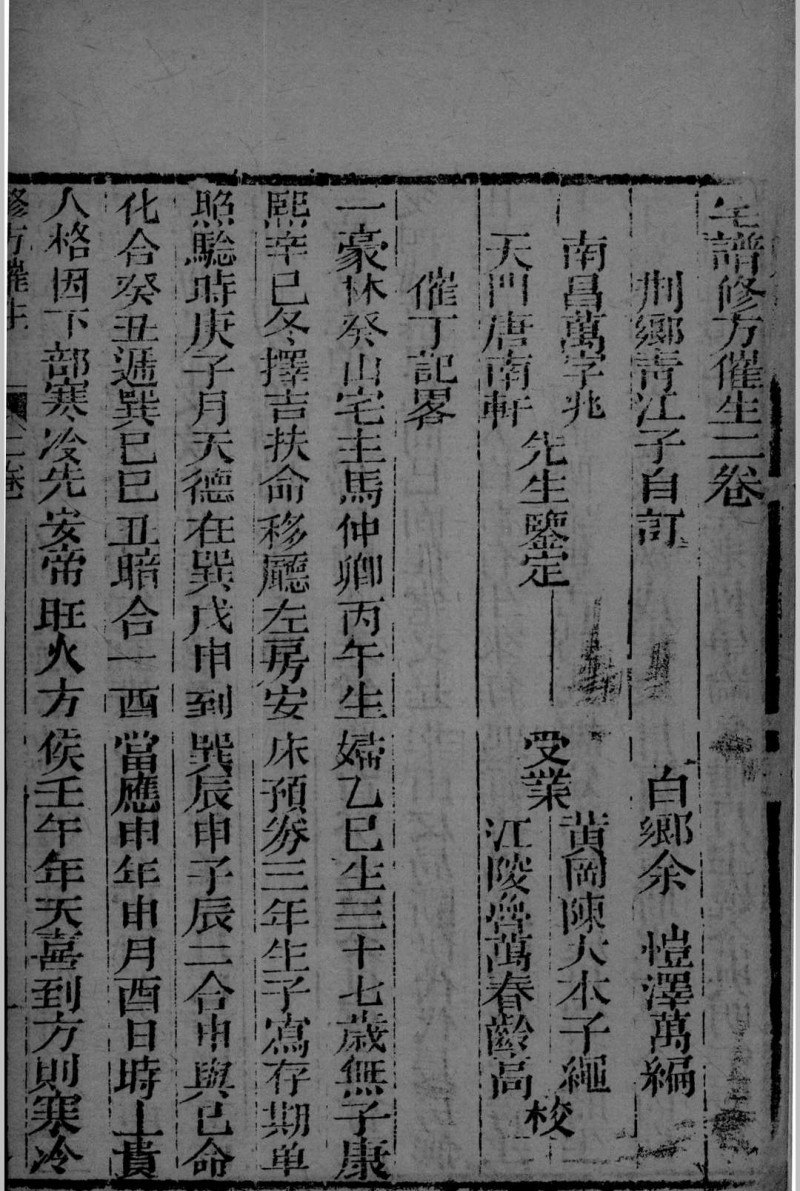 宅譜修方催生二卷
荆鄉靑江子自訂 白鄉余 愷澤萬編
南昌萬字兆 黃岡陳大本子繩
先生鑒定 受業 校
天門唐南軒 江陵魯萬春齡高
催丁記畧
一豪林癸山宅主馬仲卿丙午生婦乙巳生三十七歲無子康
熙辛巳冬擇吉扶命移廳左房安床預劵三年生子寫存期单
照驗時庚子月天德在巽戊申到巽辰申子辰二合申與巳命
化合癸丑遁巽巳巳丑暗合一酉當應申年申月酉日時上貴
人格因下部寒冷先安帝旺火方俟壬午年天喜到方則寒冷
修方催生 二卷